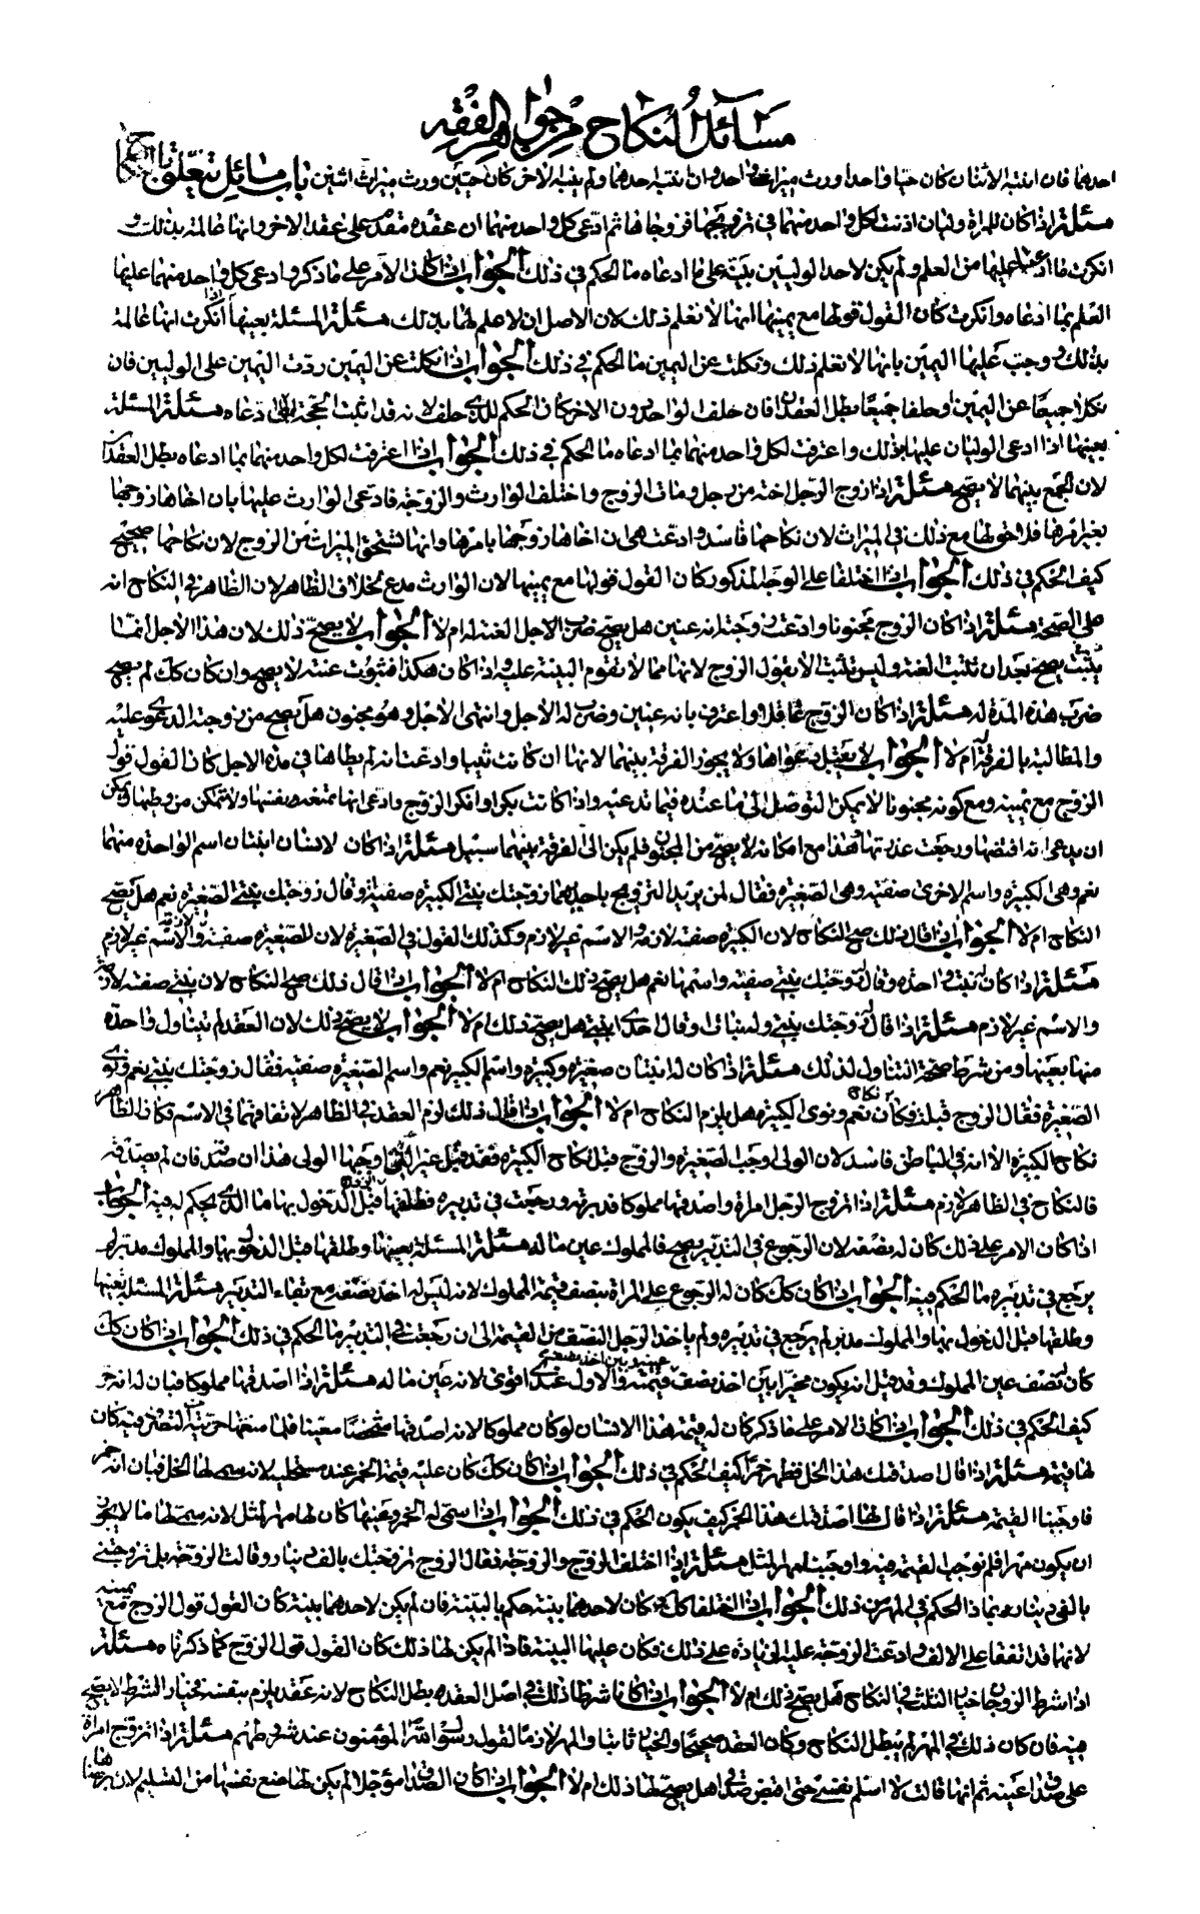 مسائل النكاح من جواهر الفقه
احدهما فان انتبه الاثنان كان حيا واحدا وورث ميراث واحد وان انتبه احدهما ولم ينتبه الاخر كان حيين وورث ميراث اثنين باب مسائل تتعلق بالنكاح
مسئلة اذا كان للمراة وليان اذنت لكل واحد منهما في تزويجها فزوجاها ثم ادعى كل واحد منهما ان عقده متقدم على عقد الاخر وانها عالمة بذلك و
انكرت ما ادعيا عليها من العلم ولم يكن لاحد الوليين بينة على ما ادعاه ما الحكم في ذلك الجواب اذا كان الامر على ما ذكر وادعى كل واحد منهما عليها
العلم بما ادعاه وانكرت كان القول قولها مع يمينها انها لا تعلم ذلك لان الاصل ان لا علم لها بذلك مسئلة المسئلة بعينها اذا انكرت انها عالمة
بذلك ووجبت عليها اليمين بانها لا تعلم ذلك ونكلت عن اليمين ما الحكم في ذلك الجواب اذا نكلت عن اليمين ردت اليمين على الوليين فان
نكلا جميعا عن اليمين او حلفا جميعا بطل العقدان فان حلف الواحد دون الاخر كان الحكم للذي حلف لانه قد اثبت الحجة ادعاه مسئلة المسئلة
بعينها اذا ادعى الوليان عليها بذلك واعترفت لكل واحد منهما بما ادعاه ما الحكم في ذلك الجواب اذا اعترفت لكل واحد منهما بما ادعاه بطل العقدان
لان الجمع بينهما لا يصح مسئلة اذا زوج الرجل اخته من رجل ومات الزوج واختلف الوارث والزوجة فادعى الوارث عليها بان اخاها زوجها
بغير امرها فلا حق لها مع ذلك في الميراث لان نكاحها فاسد وادعت هي ان اخاها زوجها بامرها وانها تستحق الميراث من الزوج لان نكاحها صحيح
كيف الحكم في ذلك الجواب اذا اختلفا على الوجه المذكور كان القول قولها مع يمينها لان الوارث مدع بخلاف الظاهر لان الظاهر في النكاح انه
على الصحة مسئلة اذا كان الزوج مجنونا وادعت زوجته انه عنين هل يصح ضرب الاجل للعنة له ام لا الجواب لا يصح ذلك لان هذا الاجل انما
يثبت يصح بعد ان تثبت العنة وليس تثبت الا بقول الزوج لانها مما لا تقوم البينة عليه واذا كان هكذا فثبوت عنته لا يصح وان كان كك لم يصح
ضرب هذه المدة له مسئلة اذا كان الزوج عاقلا واعترف بانه عنين وضرب له الاجل وانتهى الاجل وهو مجنون هل يصح من زوجته الدعوى عليه
والمطالبة بالفرقة ام لا الجواب لا يقبل دعواها ولا يجوز الفرقة بينهما لانها ان كانت ثيبا وادعت انه لم يطاها في مدة الاجل كان القول قول
الزوج مع يمينه ومع كونه مجنونا لا يمكن التوصل الى ما عنده فيما تدعيه واذا كانت بكرا وانكر الزوج وادعى انها تمنعه نفسها ولا تتمكن من وطيها ويمكن
ان يدعي انه افتضها ورجعت عذرتها فهذا مع امكانه لا يصح من المجنون فلم يكن الى الفرقة بينهما سبيل مسئلة اذا كان لانسان ابنتان اسم الواحدة منهما
نعم وهي الكبيرة واسم الاخرى صفية وهي الصغيرة فقال لمن يريد التزويج باحديهما زوجتك بنتي الكبيرة صفية او قال زوجتك بنتي الصغيرة نعم هل يصح
النكاح ام لا الجواب اذا قال ذلك صح النكاح لان الكبيرة صفة لازمة والاسم غير لازم وكذلك القول في الصغيرة لان للصغيرة صفة لازمة والاسم غير لازم
مسئلة اذا كان له بنت واحدة وقال زوجتك بنتي صفية واسمها نعم هل يصح ذلك النكاح ام لا الجواب اذا قال ذلك صح النكاح لان بنتي صفة لازمة
والاسم غير لازم مسئلة اذا قال زوجتك بنتي وله بنات او قال احدى ابنتي هل يصح ذلك ام لا الجواب لا يصح ذلك لان العقد لم يتناول واحدة
منها بعينها ومن شرط صحته التناول لذلك مسئلة اذا كان له ابنتان صغيرة وكبيرة واسم الكبيرة نعم واسم الصغيرة صفية فقال زوجتك بنتي نعم ونوى
الصغيرة فقال الزوج قبلت نكاح نعم ونوى الكبيرة هل يلزم النكاح ام لا الجواب اذا قال ذلك لزم العقد في الظاهر لاتفاقهما في الاسم فكان الظاهر
نكاح الكبيرة الا انه في الباطن فاسد لان الولي اوجب الصغيرة والزوج قبل نكاح الكبيرة فقد قبل غير التي اوجبها الولي هذا ان صدقه فان لم يصدقه
فالنكاح في الظاهر لازم مسئلة اذا تزوج الرجل امراة واصدقها مملوكا قد دبره ورجعت في تدبيره فطلقها الزوج قبل الدخول بها ما الذي يحكم له فيه الجواب
اذا كان الامر على ذلك كان له نصفه لان الرجوع في التدبير يصح فالمملوك عين ماله مسئلة المسئلة بعينها وطلقها قبل الدخول بها والمملوك مدبر لم
يرجع في تدبيره ما الحكم فيه الجواب اذا كان كك كان له الرجوع على المراة بنصف قيمة المملوك لانه ليس له اخذ نصفه مع بقاء التدبير مسئلة المسئلة بعينها
وطلقها قبل الدخول بها والمملوك مدبر لم يرجع في تدبيره ولم ياخذ الرجل النصف من القيمة الى ان رجعت في التدبير ما الحكم في ذلك الجواب اذا كان كك
كان له نصف عين المملوك وقد قيل انه يكون مخيرا بين اخذ نصف عينه وبين اخذ نصف قيمته والاول عندي اقوى لانه عين ماله مسئلة اذا اصدقها مملوكا فبان له انه حر
كيف الحكم في ذلك الجواب اذا كان الامر على ما ذكر كان له قيمة هذا الانسان لو كان مملوكا لانه اصدقها شخصا معينا فلما منعها حريته التصرف فيه كان
لها قيمته مسئلة اذا قال اصدقتك هذا الخل فظهر خمرا كيف الحكم في ذلك الجواب اذا كان كك كان عليه قيمة الخمر عند مستحليه لانه سمى لها الخل فبان انه خمر
فاوجبنا القيمة مسئلة اذا قال لها اصدقتك هذا الخمر كيف يكون الحكم في ذلك الجواب اذا سمى له الخمر وعينها كان لها مهر المثل لانه سمى لها ما لا يجوز
ان يكون مهرا فلم نوجب القيمة فيه واوجبنا مهر المثل مسئلة اذا اختلف الزوج والزوجة فقال الزوج تزوجتك بالف دينار وقالت الزوجة بل تزوجتني
بالفي دينار بماذا الحكم في المهر من ذلك الجواب اذا اختلفا كك كان لاحدهما بينة حكم بالبينة فان لم يكن لاحدهما بينة كان القول قول الزوج مع يمينه
لانها قد اتفقا على الالف وادعت الزوجة عليه الزيادة على ذلك فكان عليها البينة فاذا لم يكن لها ذلك كان القول قول الزوج كما ذكرناه مسئلة
اذا شرط الزوجان خيار الثلث في النكاح هل يصح ذلك ام لا الجواب اذا كانا شرطا ذلك في اصل العقد بطل النكاح لانه عقد يلزم بنفسه فخيار الشرط لا يصح
فيه فان كان ذلك في المهر لم يبطل النكاح وكان العقد صحيحا والخيار ثابتا والمهر لازما لقول رسول الله المؤمنون عند شروطهم مسئلة اذا تزوج امراة
على صداق عينه ثم انها قالت لا اسلم نفسي حتى اقبض صداقي هل يصح لها ذلك ام لا الجواب اذا كان الصداق مؤجلا لم يكن لها منع نفسها من التسليم لان رضاها